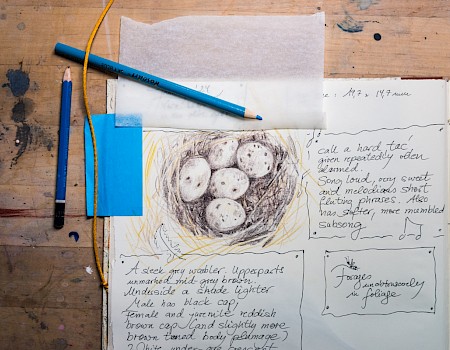 : 19,7 x 14,7 mm
call a hard 'tac'
given repeatedly when
alarmed.
Song loud, very sweet
and melodious short
fluting phrases. Also
has softer, more mumbled
subsong.
Forages
unobtrusively
in foliage
A sleek grey warbler. Upperparts
unmarked mid-grey brown.
Underside a shade lighter
Male has black cap,
female and juvenile reddish
brown cap (and slightly more
brown toned body plumage)